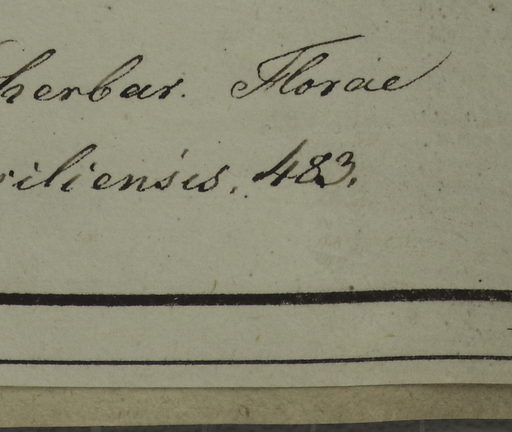 herbar. Florae
iliensis. 483.